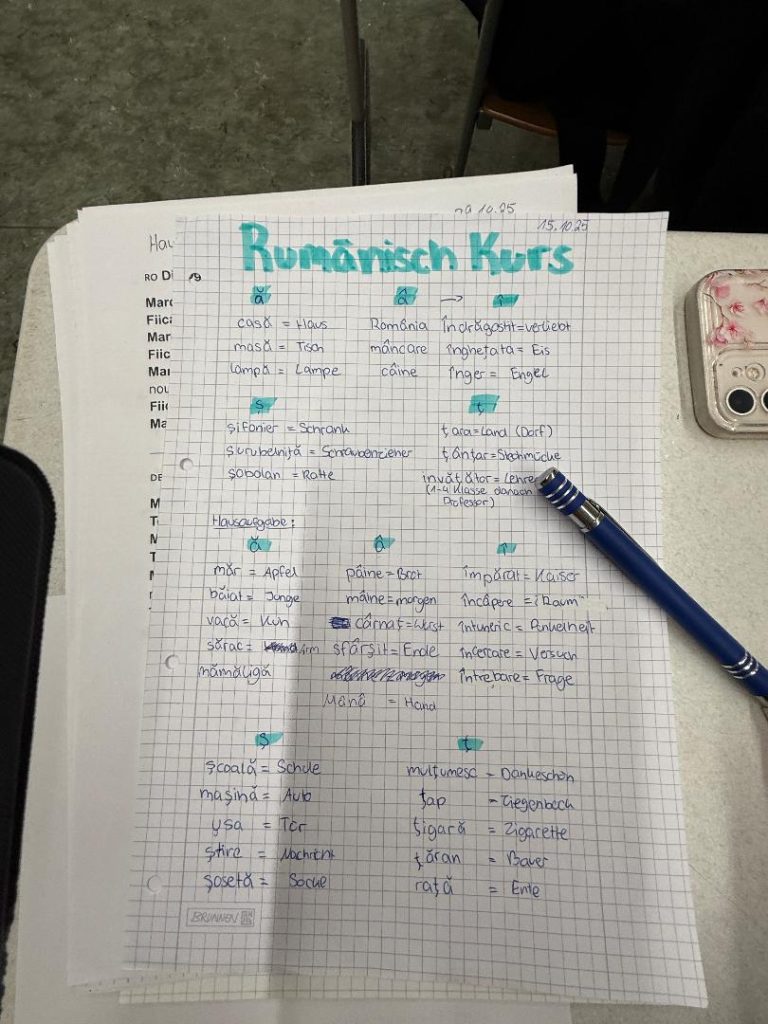 na 10.25
15.10.25
Hau
Rumänisch Kurs
RO Di
Marc
Fiica
Mar
Fiic
Mai
nou
Fiic
Ma
DE
M
T
M
T
ă
â → î
casă = Haus România Îndrăgostit=verliebt
masă = Tisch mâncare înghețata = Eis
lampă = Lampe câine înger = Engel
ș ț
șifonier = Schrank țara=Land (Dorf)
șurubelniță = Schraubenzieher țânțar=Stechmücke
șobolan = Ratte învățător=Lehre
(1-4 Klasse danach
Professor)
Hausaufgabe:
ă â î
măr = Apfel pâine=Brot împărat=Kaiser
băiat = Junge mâine=morgen încăpere = "Raum"
vacă = Kuh cârnaț=Wurst întuneric = Dunkelheit
sărac = arm sfârșit= Ende încercare = Versuch
mămăligă întrebare= Frage
Mână = Hand
ș ț
școală = Schule mulțumesc = Dankeschön
mașină = Auto țap = Ziegenbock
ușa = Tür țigară = Zigarette
știre = Nachricht țăran = Bauer
șosetă = Socke rață = Ente
BRUNNEN